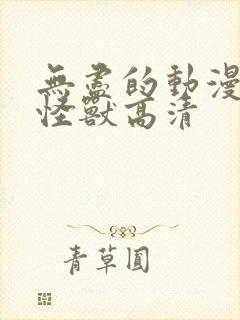 無盡的動漫
怪獸高清
青草圓